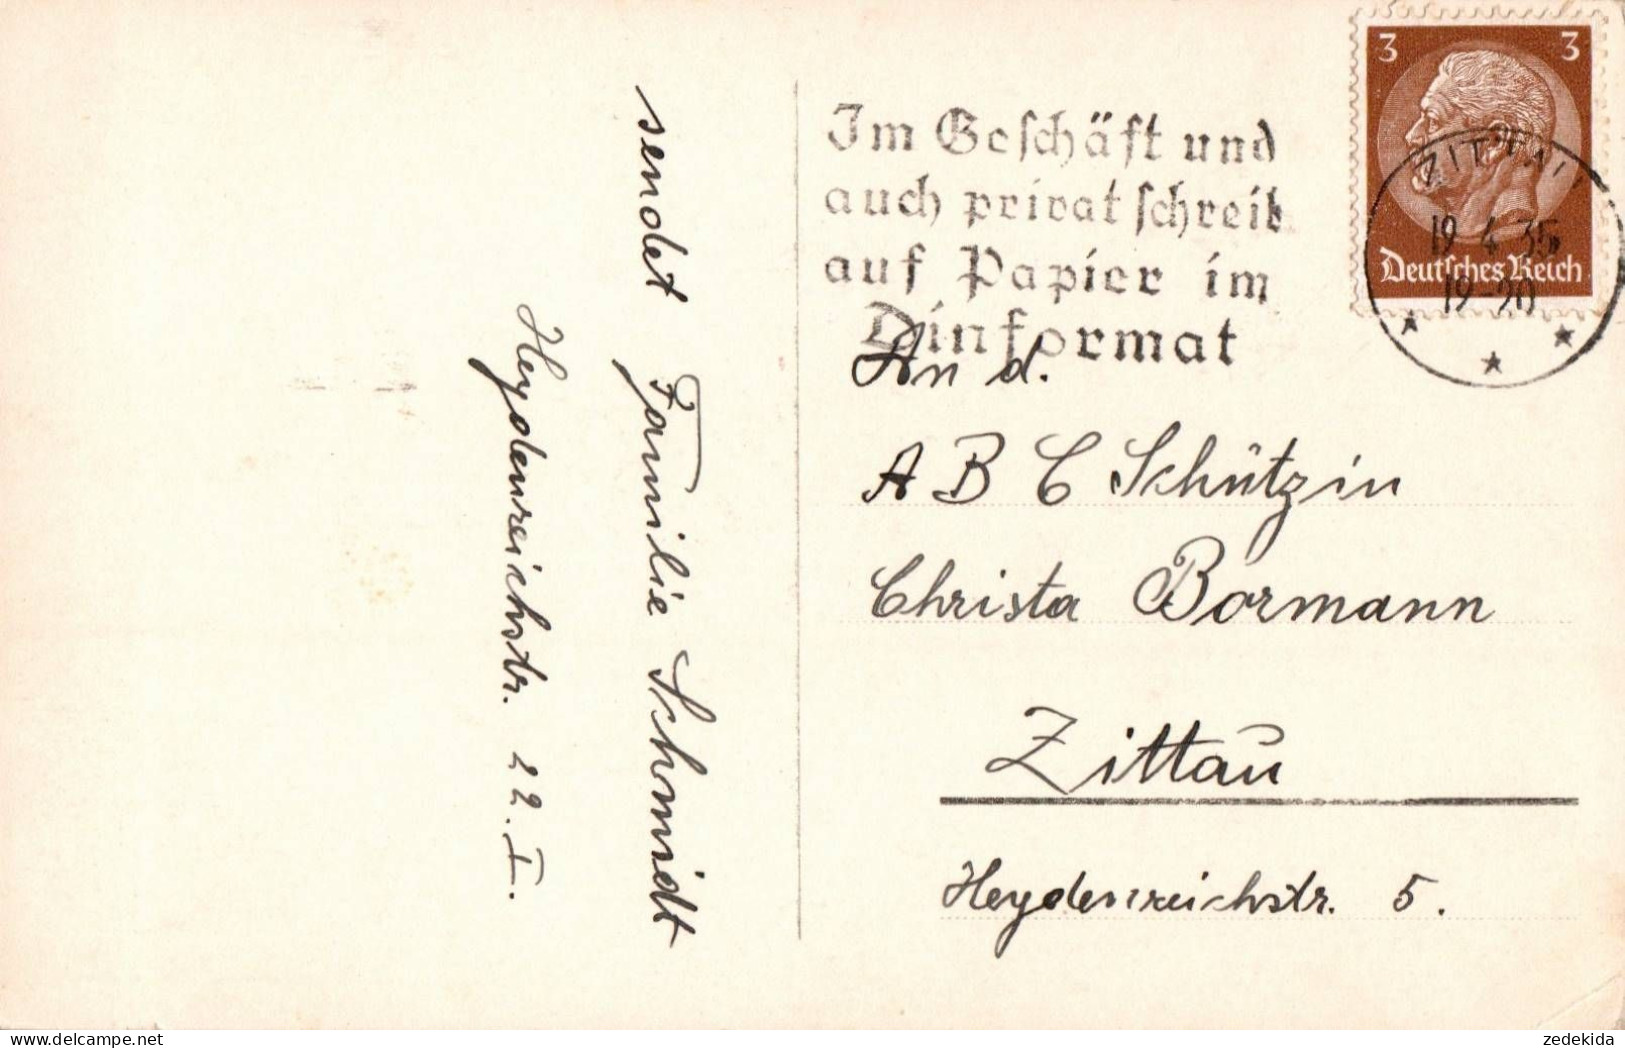 sendet Familie Schmidt
Heydenreichstr. 22. I.
Im Geschäft und
auch privat schreib
auf Papier im
Dinformat
3 3
Deutsches Reich
ZITTAU
19 4 35
19-20
An d.
A B C Schützin
Christa Bormann
Zittau
Heydenreichstr. 5.
zedekida